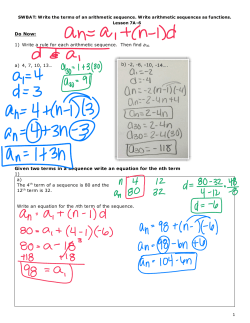 SWBAT: Write the terms of an arithmetic sequence. Write arithmetic sequences as functions.
Lesson 7A-6
Do Now:
an = a1 + (n-1)d
1) Write a rule for each arithmetic sequence. Then find a30.
d = a1
a) 4, 7, 10, 13..
a1 = 4
d = 3
a30 = 1+3(30)
a30 = 91
an = 4 + (n-1)(3)
an = 4 + 3n - 3
an = 1 + 3n
b) -2, -6, -10, -14...
a1 = -2
d = -4
an = -2 + (n-1)(-4)
an = -2 - 4n + 4
an = 2 - 4n
a30 = 2 - 4n
a30 = 2 - 4(30)
a30 = -118
Given two terms in sequence write an equation for the nth term
1)
a)
The 4th term of a sequence is 80 and the
12th term is 32.
n 4 12
an 80 32
d = 80-32 = 48
4-12 -8
d = -6
Write an equation for the nth term of the sequence.
an = a1 + (n-1)d
80 = a1 + (4-1)(-6)
80 = a - 18
+18 +18
98 = a1
an = 98 + (n-1)(-6)
an = 98 - 6n + 6
an = 104 - 6n
1